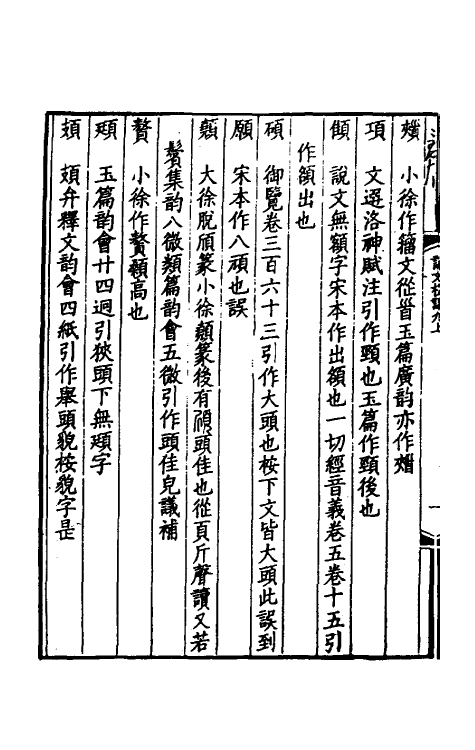 說文校議九上
一
小徐作籀文從𦣻玉篇廣韵亦作
項　文選洛神賦注引作頸也玉篇作頸後也
顀　說文無額字宋本作出頟也一切經音義卷五卷十五引
作頟出也
碩　御覽卷三百六十三引作大頭也桉下文皆大頭此誤到
願　宋本作八頑也誤
顤　大徐脫頎篆小徐顤篆後有頎頭佳也從頁斤聲讀又若
鬢集韵八微類篇韵會五微引作頭佳皃議補
贅　小徐作贅顤高也
頲　玉篇韵會廿四迥引狹頭下無頲字
頍　頍弁釋文韵會四紙引作舉頭貌桉貌字是